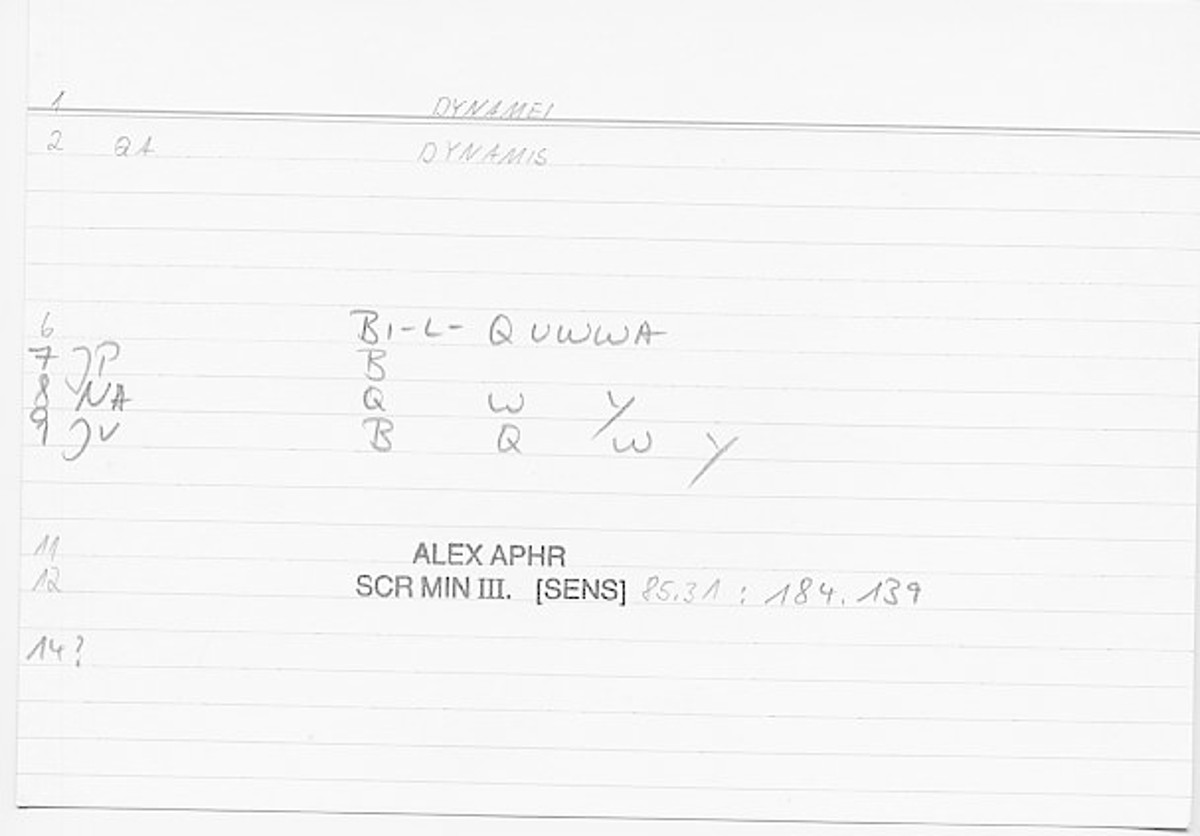 1 DYNAMEI
2 QA DYNAMIS
6 BI-L- QUWWA
7 JP B
8 NA Q W Y
9 JV B Q W Y
11 ALEX APHR
12 SCR MIN III. [SENS] 85.31 : 184.139
14?